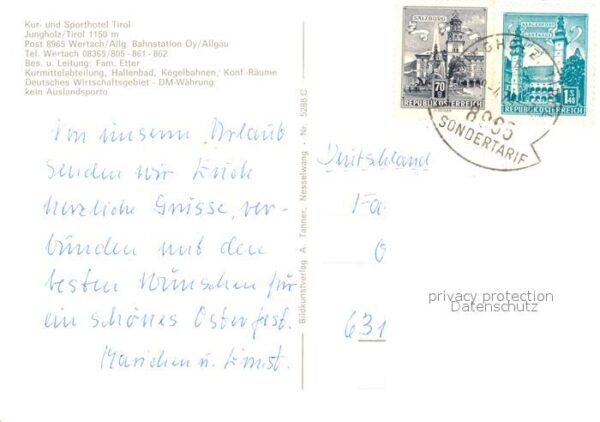 Kur- und Sporthotel Tirol
Jungholz/Tirol 1150 m
Post 8965 Wertach/Allg. Bahnstation Oy/Allgäu
Tel. Wertach 08365/805 - 861 - 862
Bes. u. Leitung: Fam. Etter
Kurmittelabteilung, Hallenbad, Kegelbahnen, Konf.-Räume
Deutsches Wirtschaftsgebiet - DM-Währung
kein Auslandsporto
Von unserm Urlaub
senden wir Euch
herzliche Grüsse, ver-
bunden mit den
besten Wünschen für
ein schönes Osterfest.
Mariechen u. Ernst.
Bildkunstverlag A. Tanner, Nesselwang - Nr. 5286 C
SALZBURG
70 g
REPUBLIK ÖSTERREICH
KLAGENFURT
S 1.40
REPUBLIK ÖSTERREICH
JUNGHOLZ
8965
SONDERTARIF
Deutschland
Fa
631
privacy protection
Datenschutz